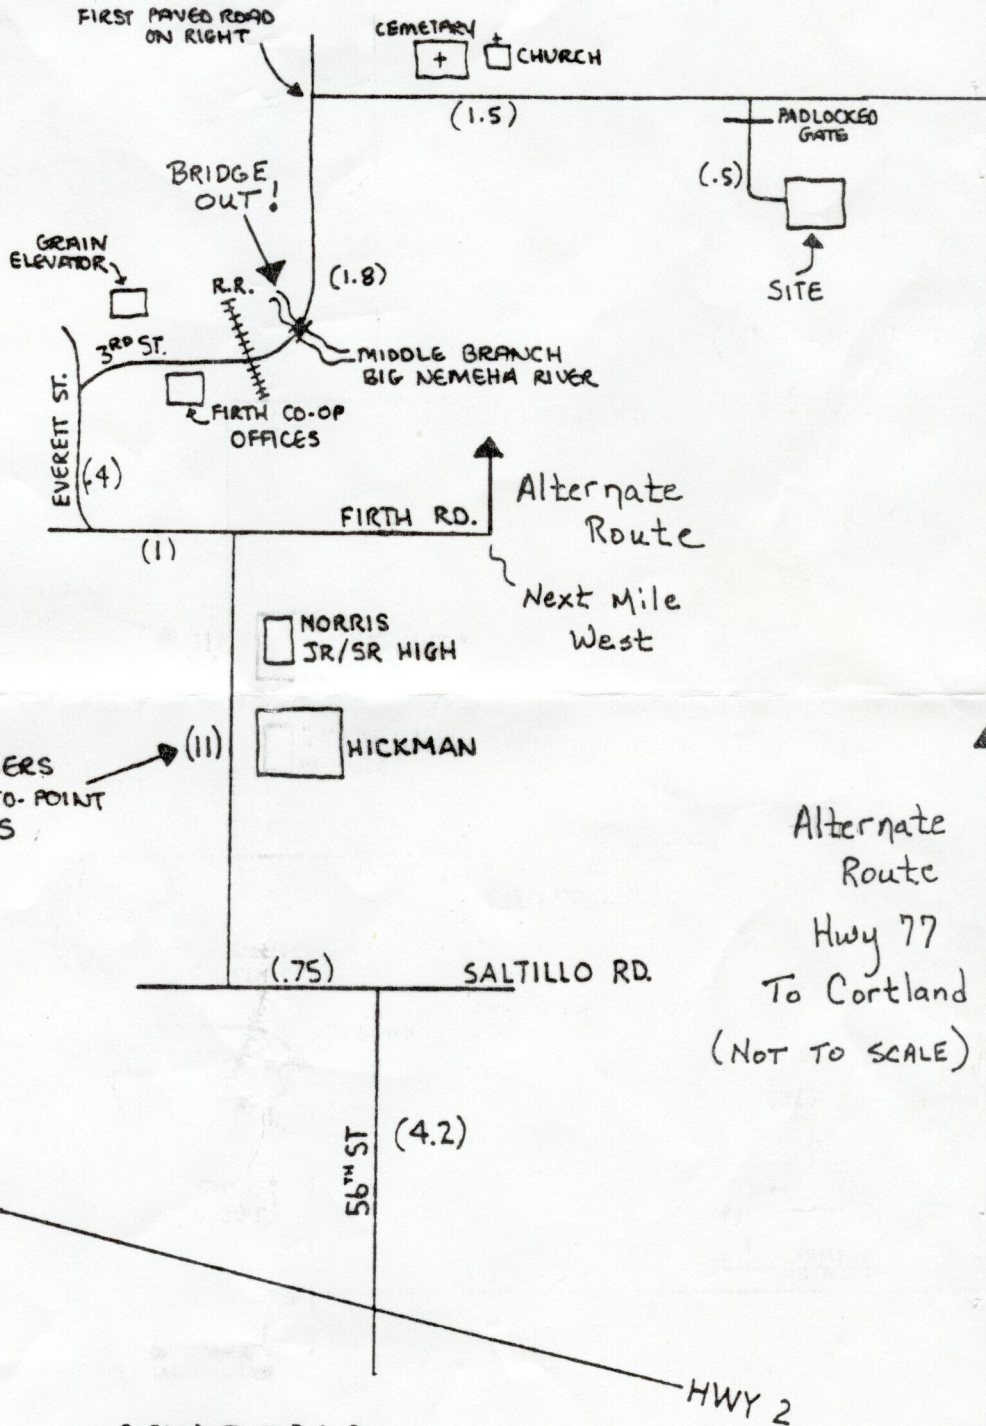 FIRST PAVED ROAD
ON RIGHT
CEMETARY
CHURCH
(1.5)
PADLOCKED
GATE
(.5)
SITE
BRIDGE
OUT!
GRAIN
ELEVATOR
R.R.
(1.8)
3RD ST.
MIDDLE BRANCH
BIG NEMEHA RIVER
FIRTH CO-OP
OFFICES
EVERETT ST.
(.4)
FIRTH RD.
(1)
Alternate
Route
Next Mile
West
NORRIS
JR/SR HIGH
(11)
HICKMAN
ERS
TO-POINT
S
Alternate
Route
Hwy 77
To Cortland
(NOT TO SCALE)
(.75)
SALTILLO RD.
56TH ST
(4.2)
HWY 2